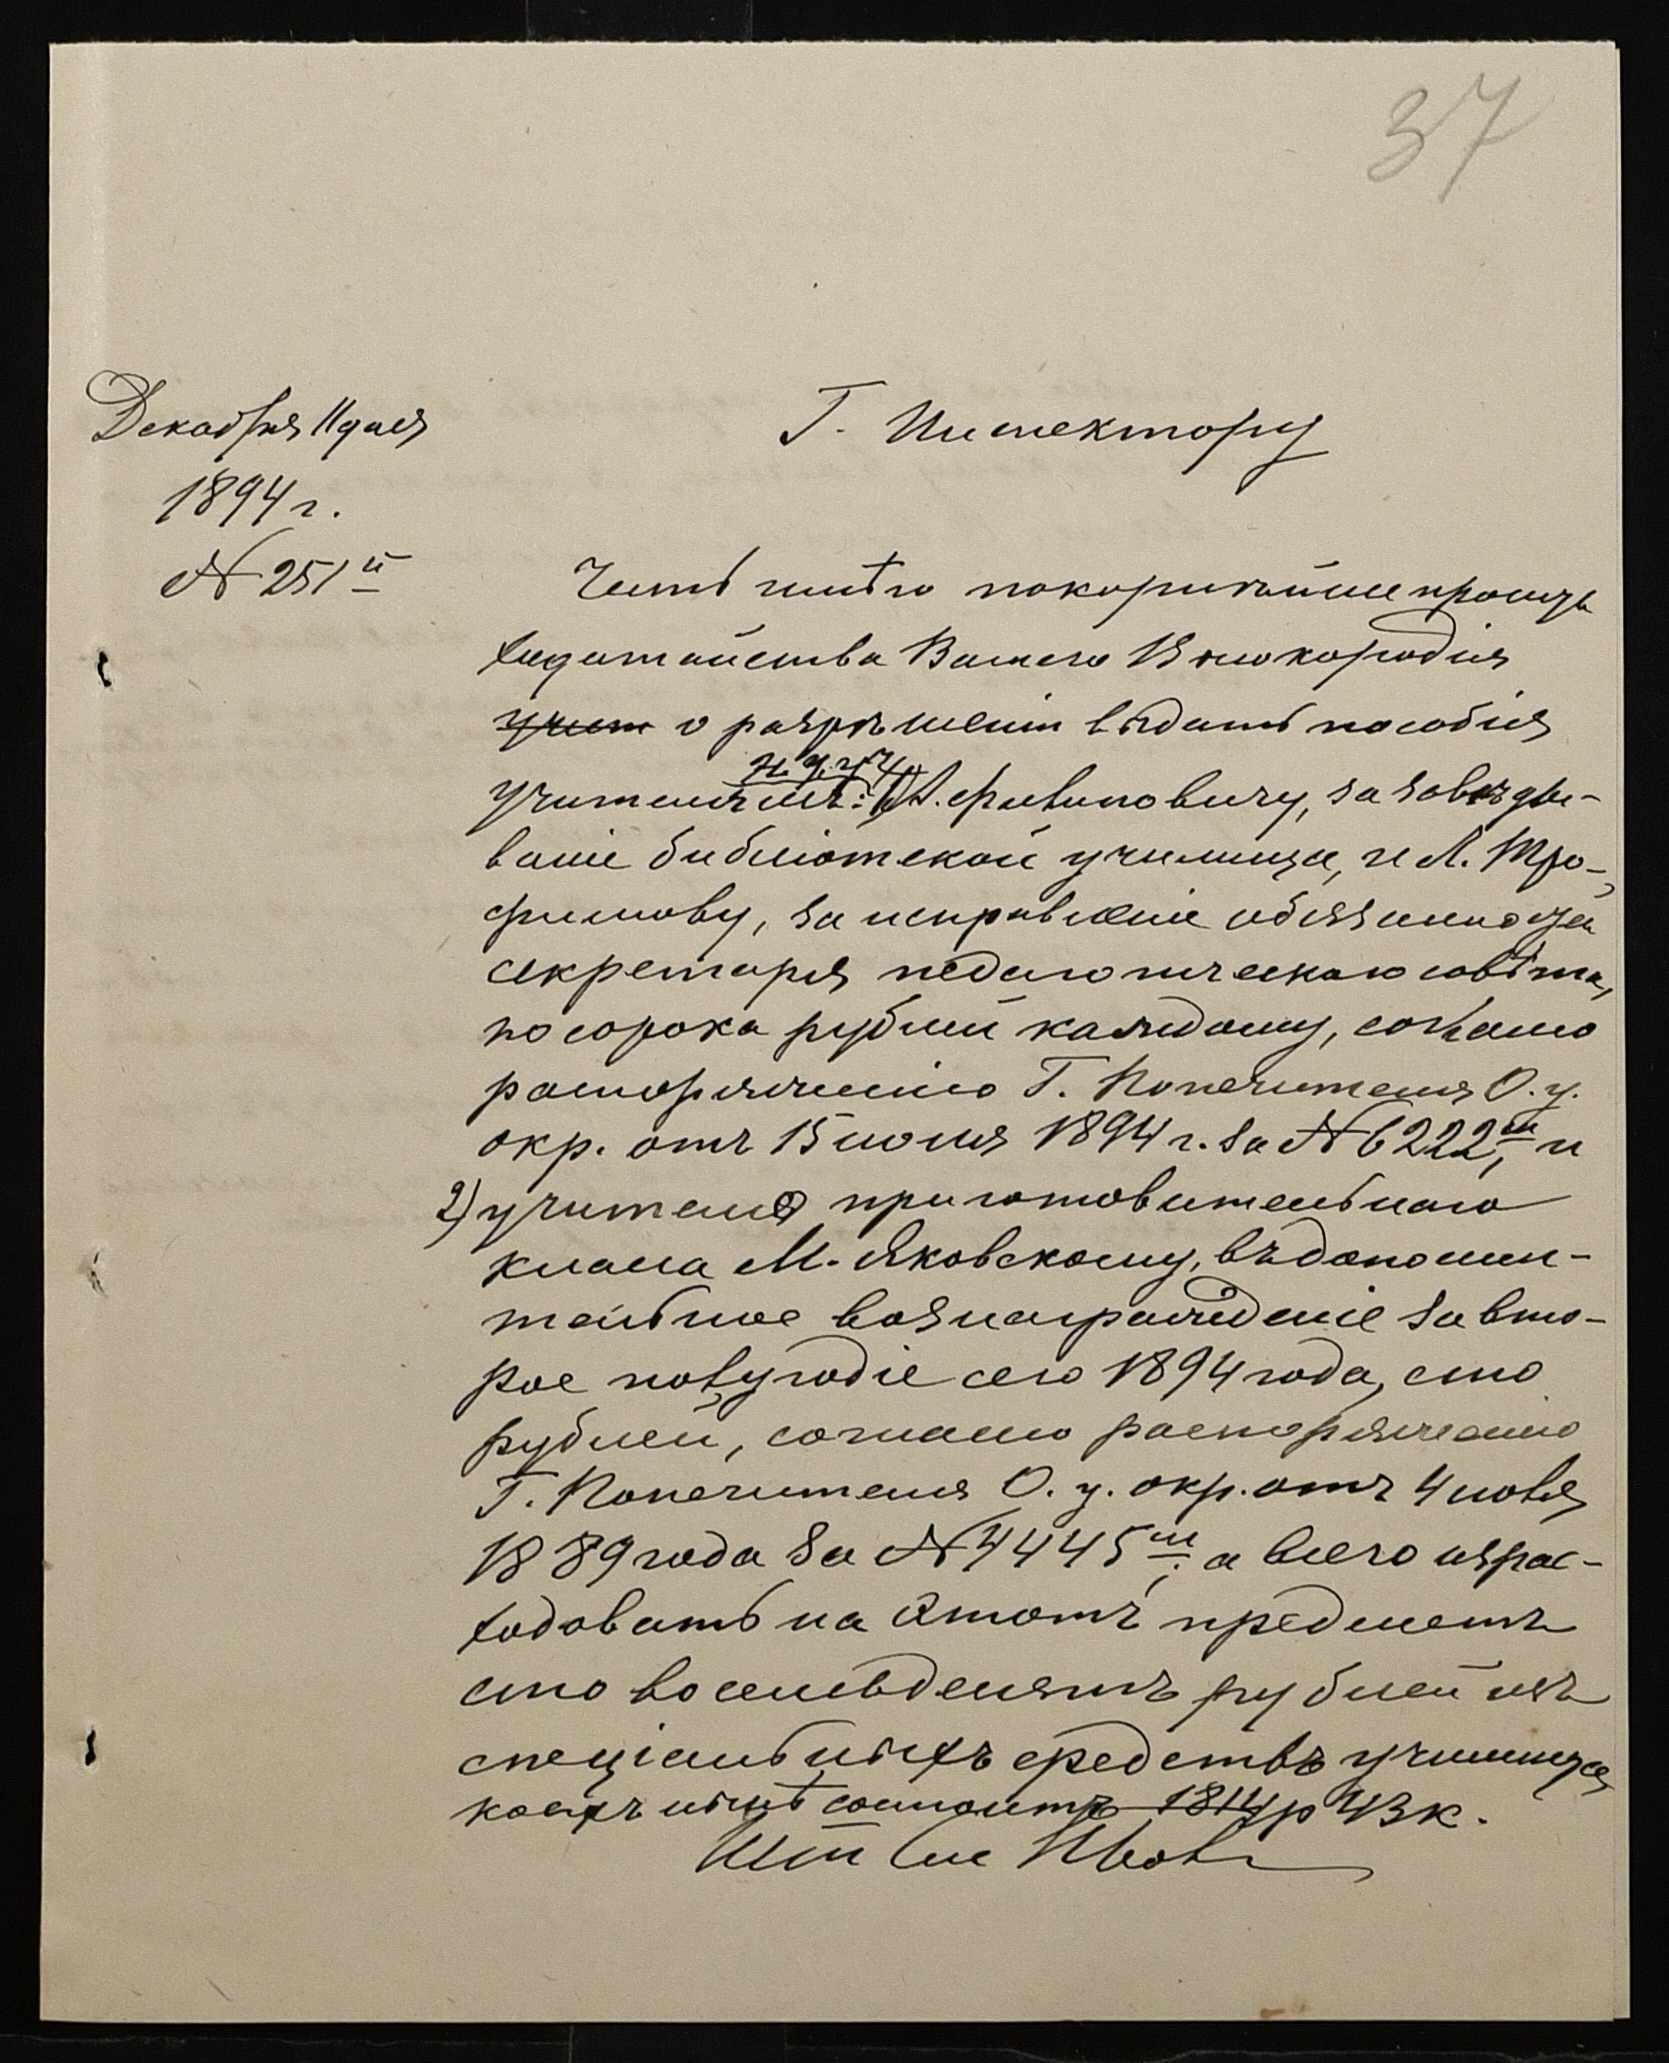 37
Декабря 11 дня
1894 г.
№ 251й
Г. Инспектору
Честь имѣю покорнѣйше просить
ходатайства Вашего Высокородія
о разрѣшеніи выдать пособія
учителямъ: 1) А. Филиповичу, за завѣды-
ваніе библіотекой училища, и Л. Тро-
фимову, за исправленіе обязанностей
секретаря педагогическаго совѣта,
по сорока рублей каждому, согласно
распоряженію Г. Попечителя О. у.
окр. отъ 15 іюля 1894 г. за № 6222, и
2) учителю приготовительнаго
класса М. Яковскому, въ дополни-
тельное вознагражденіе за вто-
рое полугодіе сего 1894 года, сто
рублей, согласно распоряженію
Г. Попечителя О. у. окр. отъ 4 ноября
1889 года за № 4445, а всего израс-
ходовать на этотъ предметъ
сто восемьдесятъ рублей изъ
спеціальныхъ средствъ училища,
коихъ нынѣ состоитъ 1814 р 43 к.